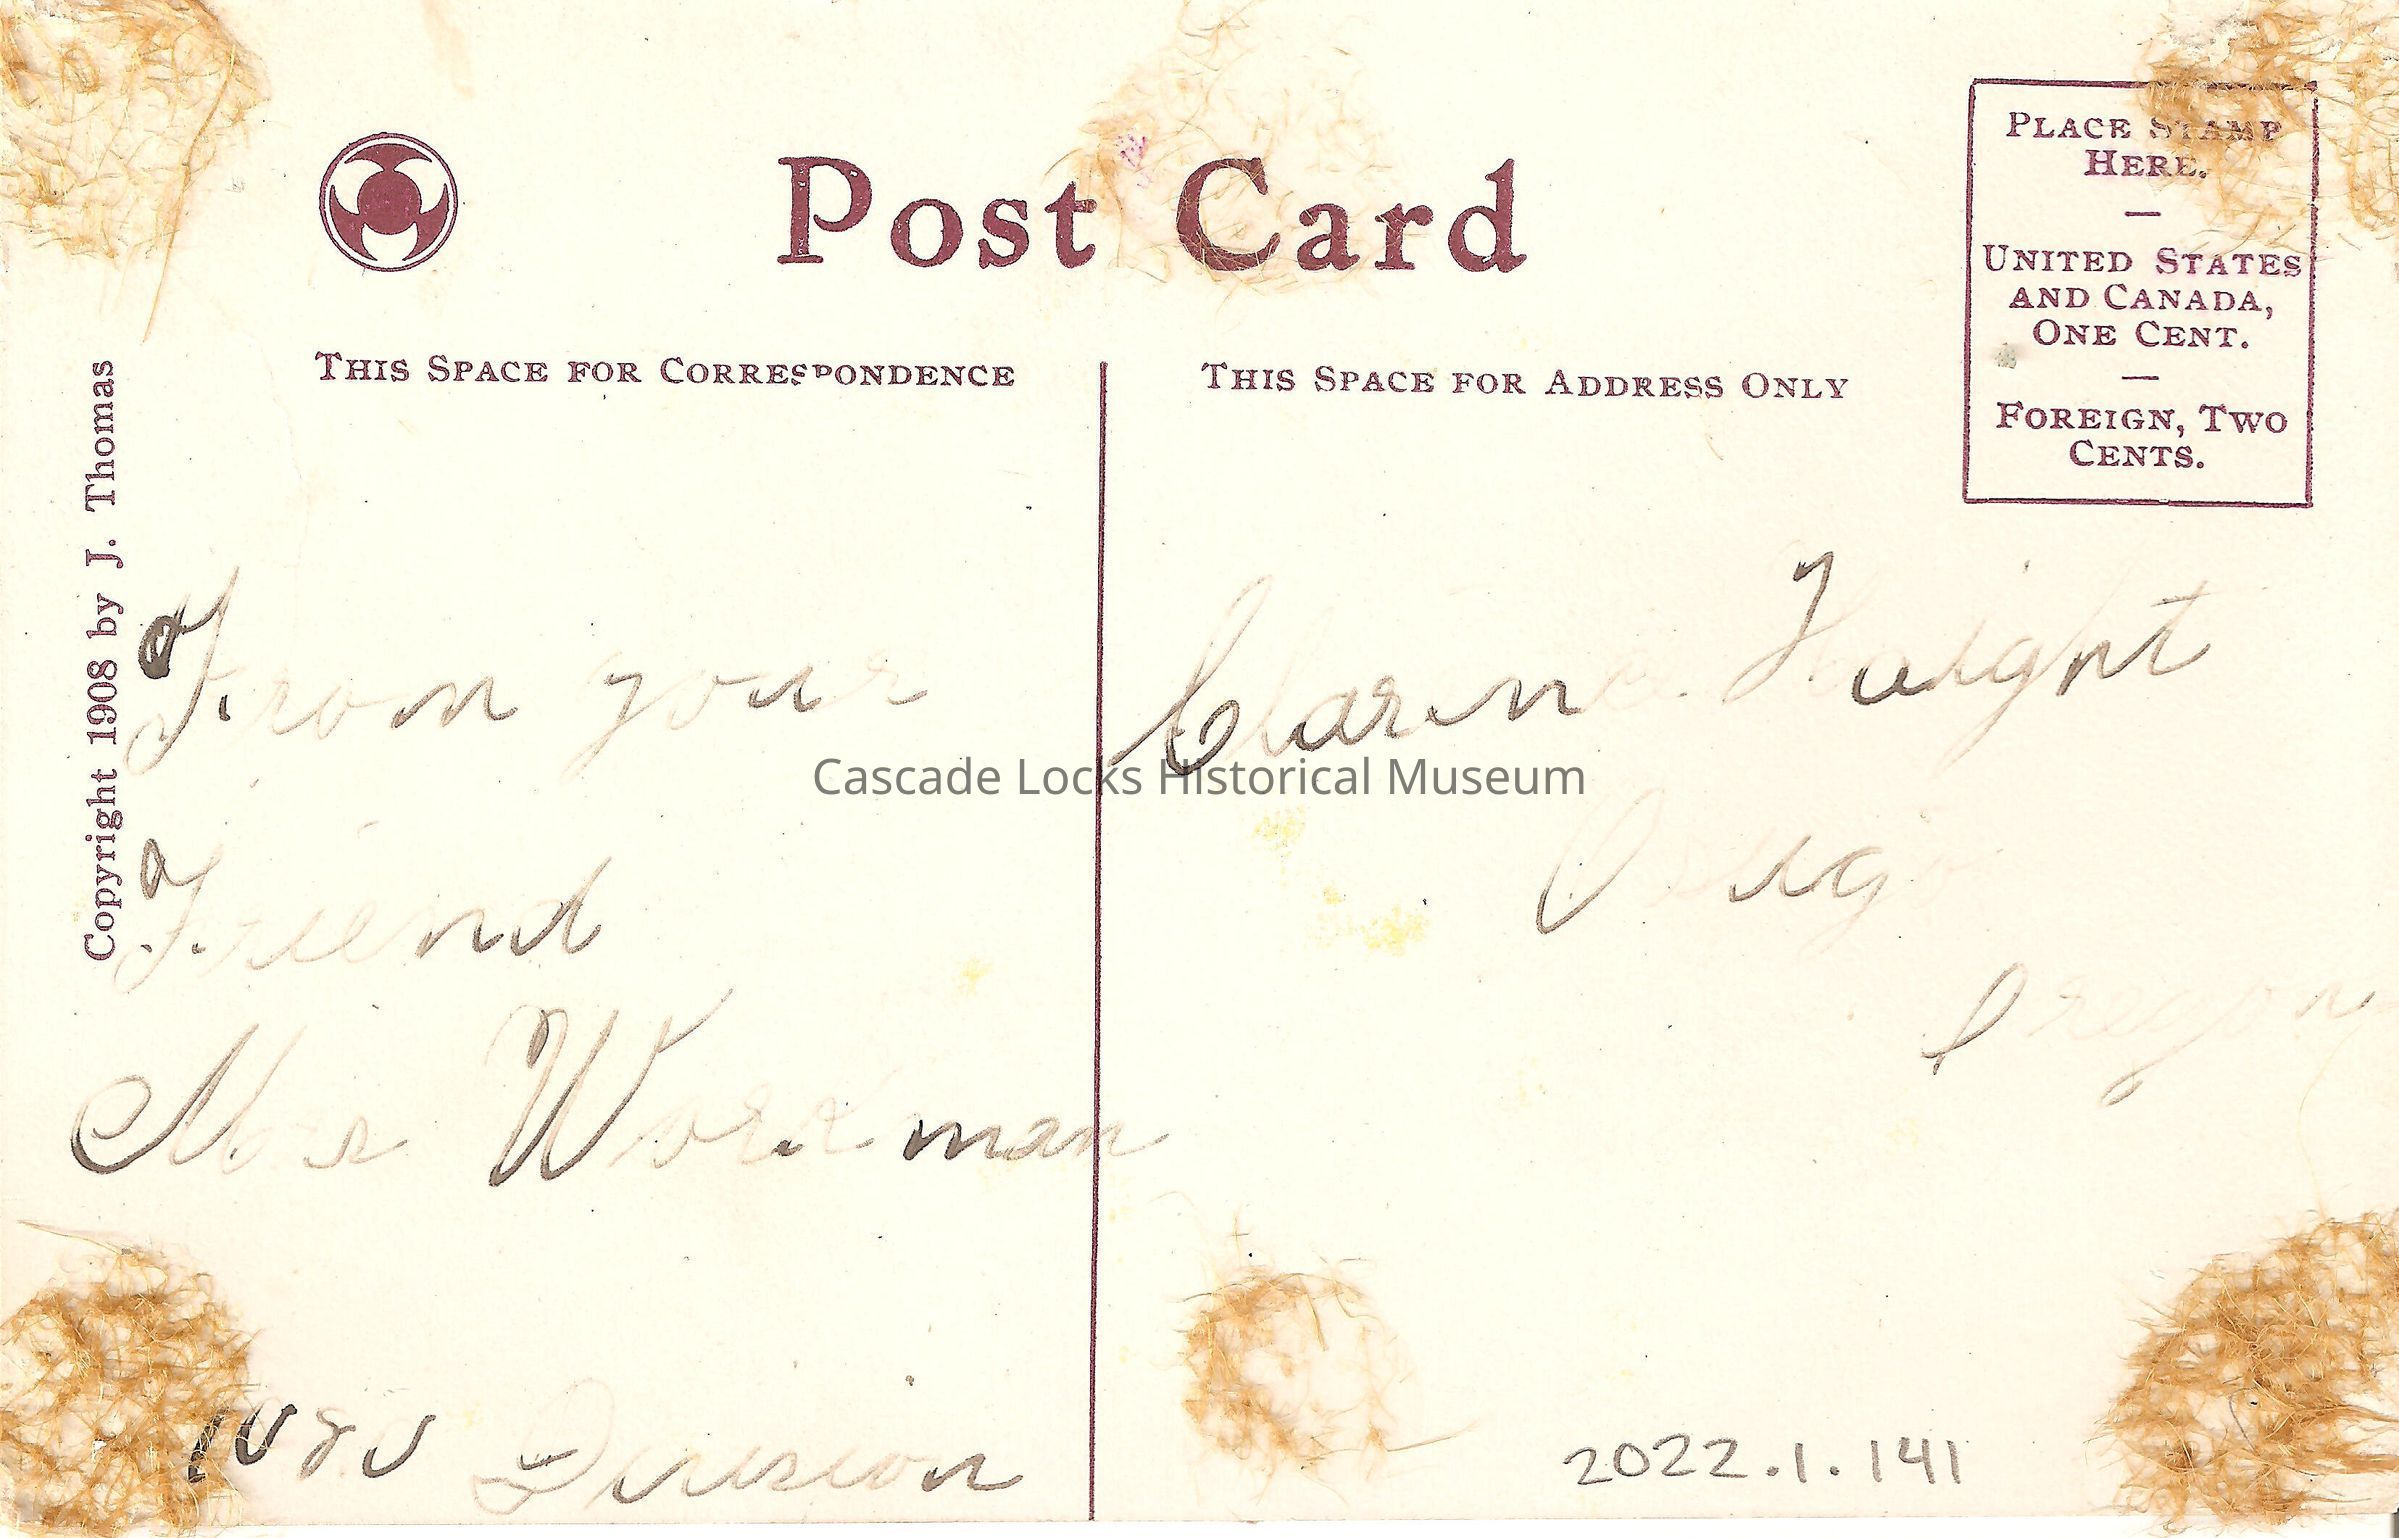 Post Card
PLACE STAMP
HERE.
—
UNITED STATES
AND CANADA,
ONE CENT.
—
FOREIGN, TWO
CENTS.
THIS SPACE FOR CORRESPONDENCE
THIS SPACE FOR ADDRESS ONLY
Copyright 1908 by J. Thomas
From your
Friend
Mrs Workman
Division
Oregon
Cascade Locks Historical Museum
2022.1.141